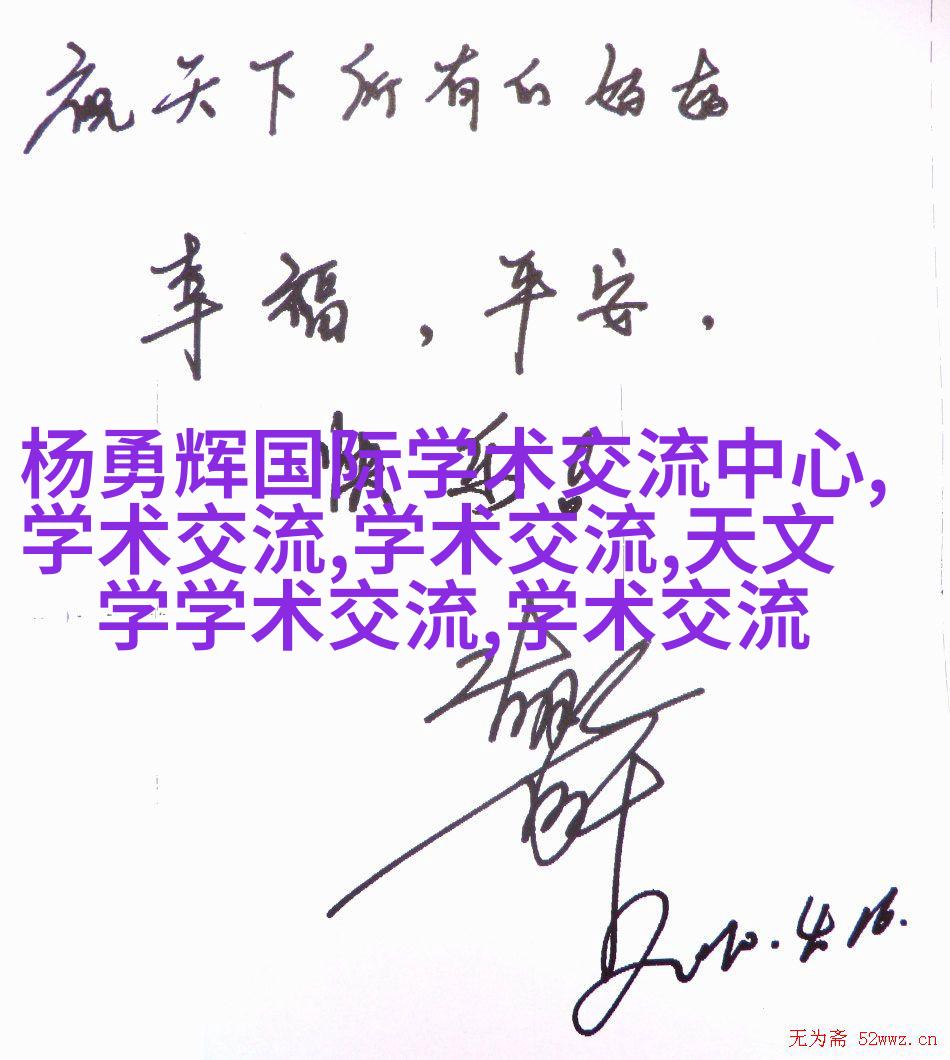 祝天下所有的妈妈
幸福，平安，
快乐！
杨勇辉国际学术交流中心,
学术交流,学术交流,天文
学学术交流,学术交流
2010.4.16.
无为斋 52wwz.cn